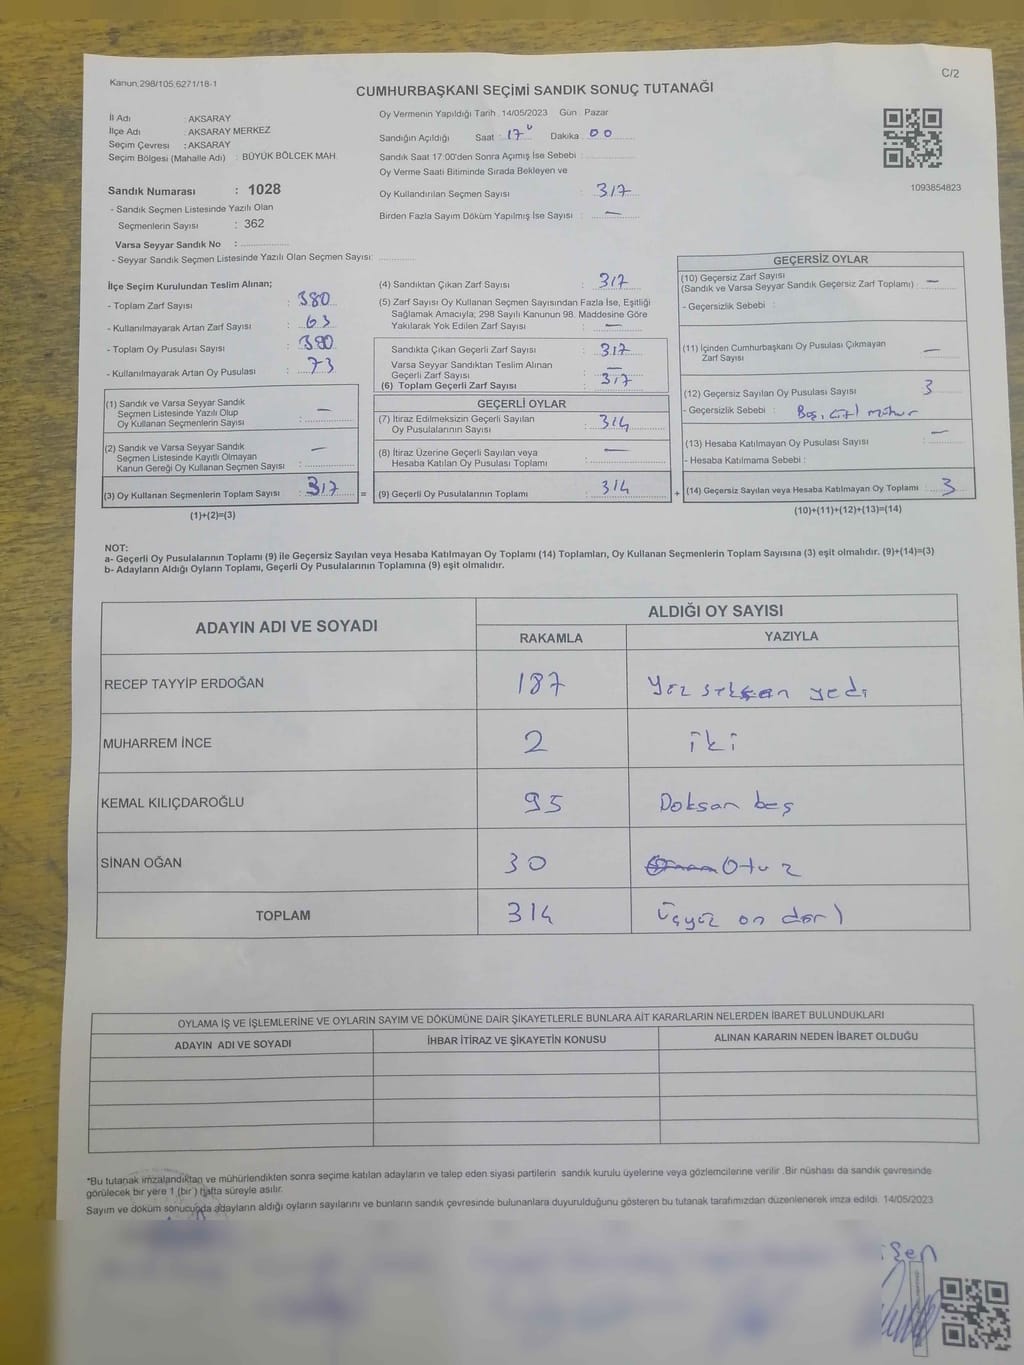 Kanun.298/105.6271/18-1
C/2
CUMHURBAŞKANI SEÇİMİ SANDIK SONUÇ TUTANAĞI
İl Adı : AKSARAY
İlçe Adı : AKSARAY MERKEZ
Seçim Çevresi : AKSARAY
Seçim Bölgesi (Mahalle Adı) : BÜYÜK BÖLCEK MAH.
Sandık Numarası : 1028
- Sandık Seçmen Listesinde Yazılı Olan
Seçmenlerin Sayısı : 362
Varsa Seyyar Sandık No :
- Seyyar Sandık Seçmen Listesinde Yazılı Olan Seçmen Sayısı:
Oy Vermenin Yapıldığı Tarih : 14/05/2023 Gün : Pazar
Sandığın Açıldığı Saat : 17 Dakika 00
Sandık Saat 17:00'den Sonra Açımış İse Sebebi :
Oy Verme Saati Bitiminde Sırada Bekleyen ve
Oy Kullandırılan Seçmen Sayısı : 317
Birden Fazla Sayım Döküm Yapılmış İse Sayısı : —
1093854823
İlçe Seçim Kurulundan Teslim Alınan;
- Toplam Zarf Sayısı : 380
- Kullanılmayarak Artan Zarf Sayısı : 63
- Toplam Oy Pusulası Sayısı : 390
- Kullanılmayarak Artan Oy Pusulası : 73
(1) Sandık ve Varsa Seyyar Sandık
Seçmen Listesinde Yazılı Olup
Oy Kullanan Seçmenlerin Sayısı : —
(2) Sandık ve Varsa Seyyar Sandık
Seçmen Listesinde Kayıtlı Olmayan
Kanun Gereği Oy Kullanan Seçmen Sayısı : —
(3) Oy Kullanan Seçmenlerin Toplam Sayısı : 317 =
(1)+(2)=(3)
(4) Sandıktan Çıkan Zarf Sayısı : 317
(5) Zarf Sayısı Oy Kullanan Seçmen Sayısından Fazla İse, Eşitliği
Sağlamak Amacıyla; 298 Sayılı Kanunun 98. Maddesine Göre
Yakılarak Yok Edilen Zarf Sayısı : —
Sandıkta Çıkan Geçerli Zarf Sayısı : 317
Varsa Seyyar Sandıktan Teslim Alınan
Geçerli Zarf Sayısı : —
(6) Toplam Geçerli Zarf Sayısı : 317
GEÇERLİ OYLAR
(7) İtiraz Edilmeksizin Geçerli Sayılan
Oy Pusulalarının Sayısı : 314
(8) İtiraz Üzerine Geçerli Sayılan veya
Hesaba Katılan Oy Pusulası Toplamı : —
(9) Geçerli Oy Pusulalarının Toplamı : 314 +
GEÇERSİZ OYLAR
(10) Geçersiz Zarf Sayısı
(Sandık ve Varsa Seyyar Sandık Geçersiz Zarf Toplamı) : —
- Geçersizlik Sebebi :
(11) İçinden Cumhurbaşkanı Oy Pusulası Çıkmayan
Zarf Sayısı : —
(12) Geçersiz Sayılan Oy Pusulası Sayısı : 3
- Geçersizlik Sebebi : Boş, çift mühür
(13) Hesaba Katılmayan Oy Pusulası Sayısı : —
- Hesaba Katılmama Sebebi :
(14) Geçersiz Sayılan veya Hesaba Katılmayan Oy Toplamı : 3
(10)+(11)+(12)+(13)=(14)
NOT:
a- Geçerli Oy Pusulalarının Toplamı (9) ile Geçersiz Sayılan veya Hesaba Katılmayan Oy Toplamı (14) Toplamları, Oy Kullanan Seçmenlerin Toplam Sayısına (3) eşit olmalıdır. (9)+(14)=(3)
b- Adayların Aldığı Oyların Toplamı, Geçerli Oy Pusulalarının Toplamına (9) eşit olmalıdır.
ADAYIN ADI VE SOYADI
ALDIĞI OY SAYISI
RAKAMLA YAZIYLA
RECEP TAYYİP ERDOĞAN 187 Yüz seksen yedi
MUHARREM İNCE 2 iki
KEMAL KILIÇDAROĞLU 95 Doksan beş
SİNAN OĞAN 30 Otuz
TOPLAM 314 Üçyüz on dört
OYLAMA İŞ VE İŞLEMLERİNE VE OYLARIN SAYIM VE DÖKÜMÜNE DAİR ŞİKAYETLERLE BUNLARA AİT KARARLARIN NELERDEN İBARET BULUNDUKLARI
ADAYIN ADI VE SOYADI İHBAR İTİRAZ VE ŞİKAYETİN KONUSU ALINAN KARARIN NEDEN İBARET OLDUĞU
*Bu tutanak imzalandıktan ve mühürlendikten sonra seçime katılan adayların ve talep eden siyasi partilerin sandık kurulu üyelerine veya gözlemcilerine verilir .Bir nüshası da sandık çevresinde
görülecek bir yere 1 (bir ) hafta süreyle asılır.
Sayım ve döküm sonucunda adayların aldığı oyların sayılarını ve bunların sandık çevresinde bulunanlara duyurulduğunu gösteren bu tutanak tarafımızdan düzenlenerek imza edildi. 14/05/2023